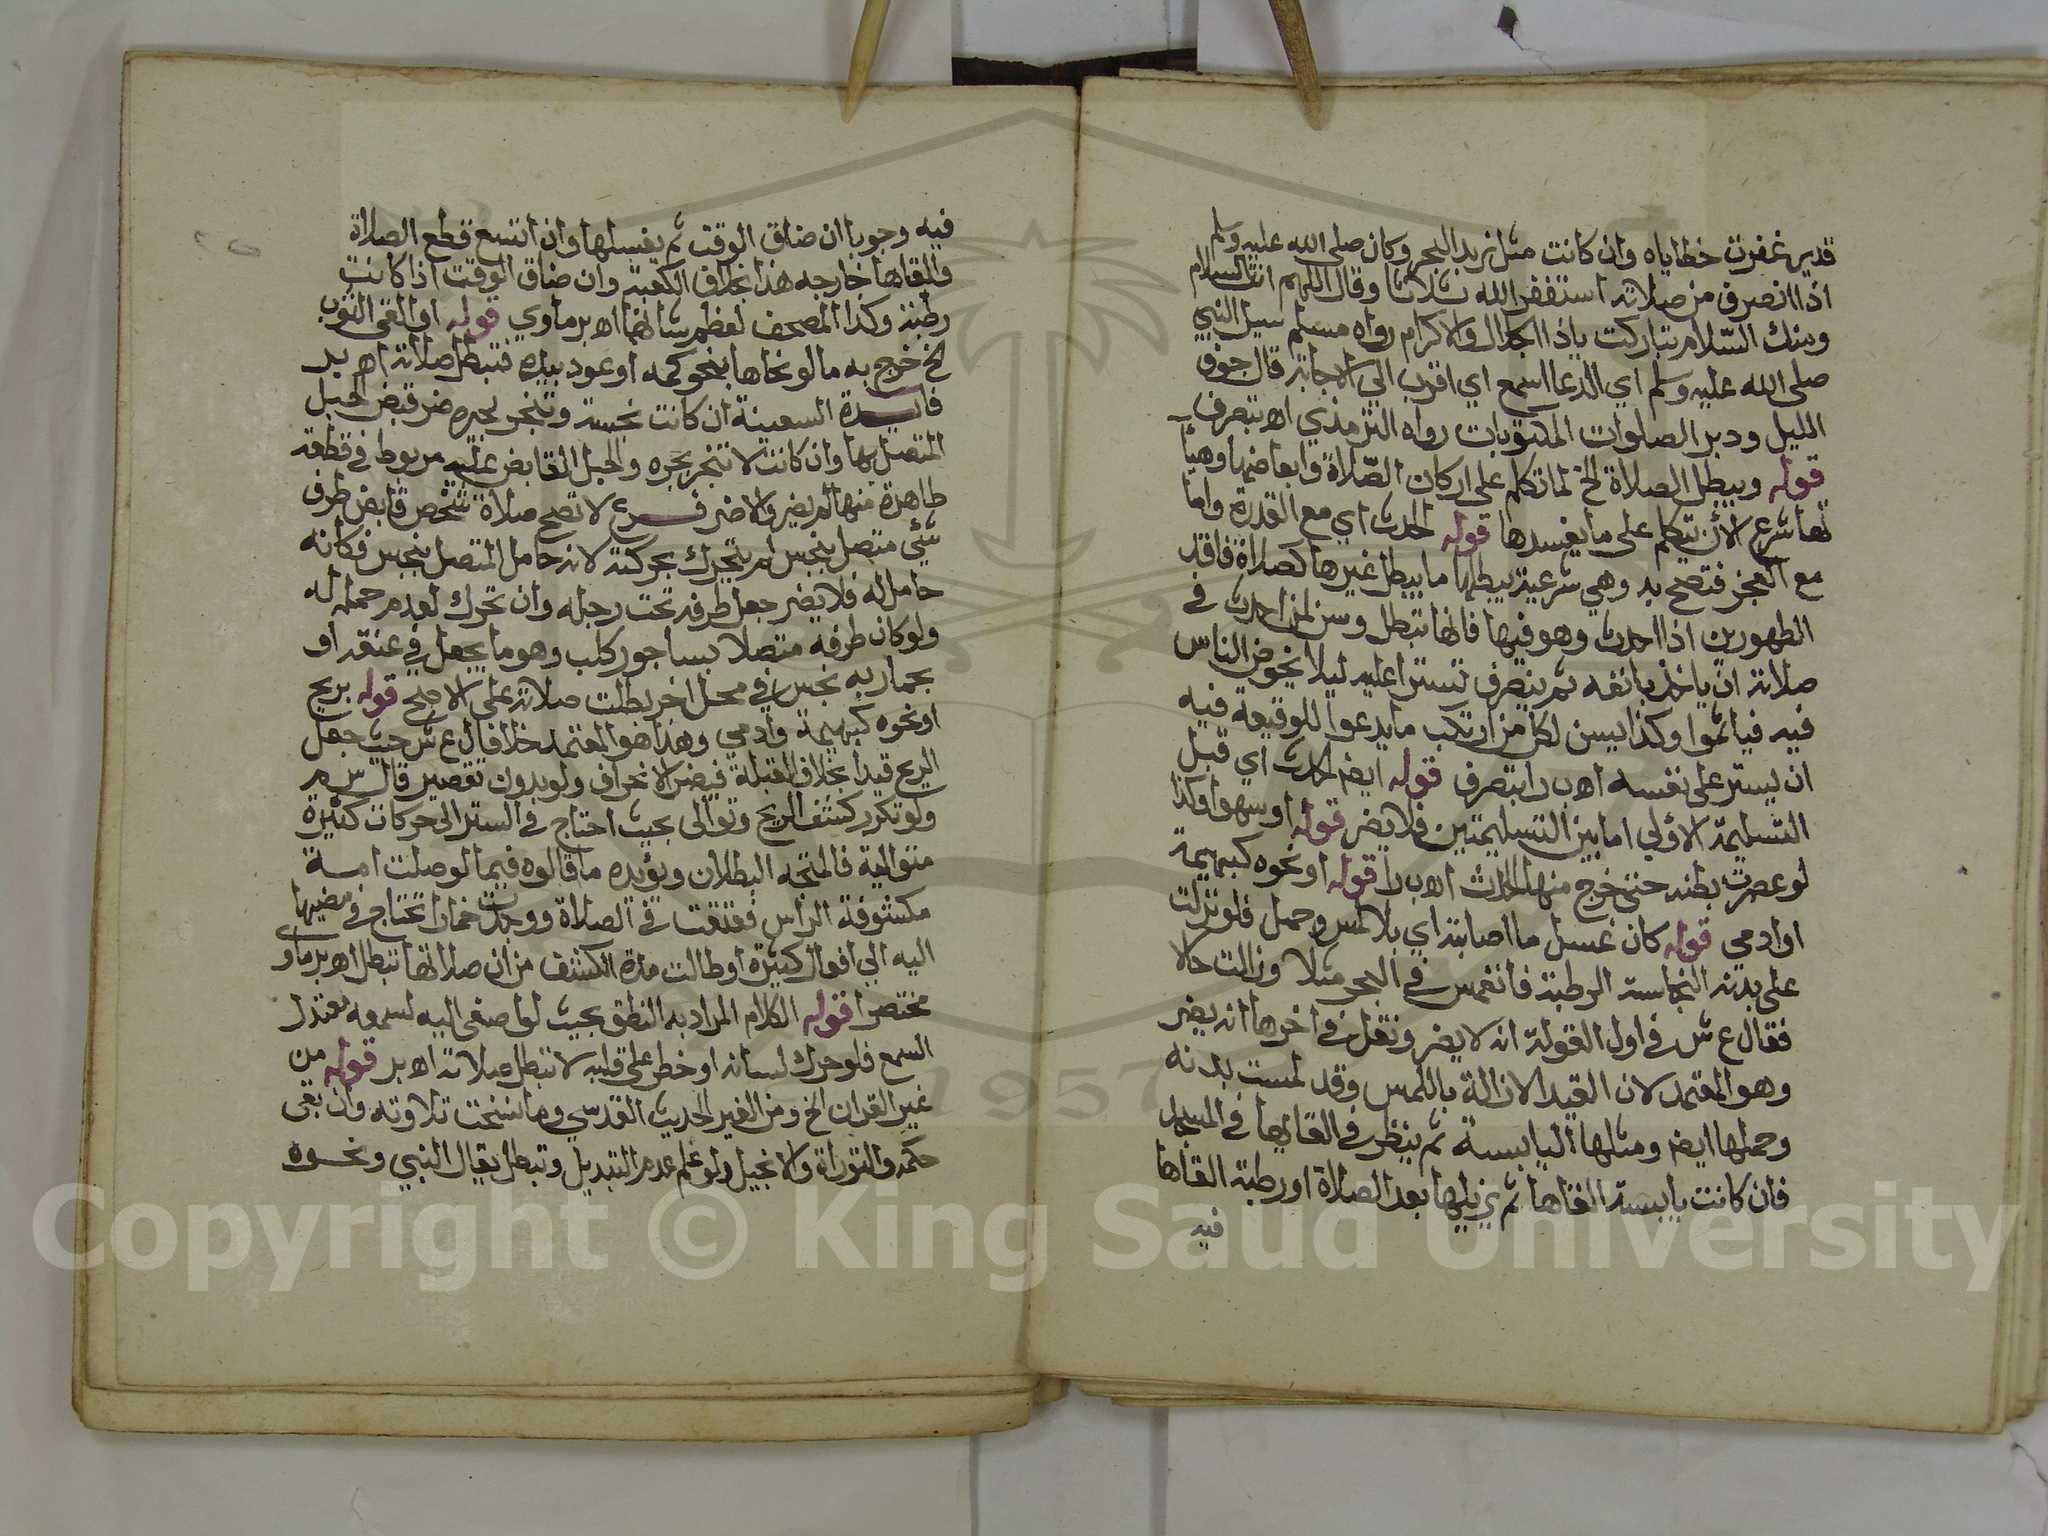 قدير غفرت خطاياه وان كانت مثل زبد البحر وكان صلى الله عليه وسلم
اذا انصرف من صلاته استغفر الله ثلاثا وقال اللهم انت السلام
ومنك السلام تباركت ياذا الجلال والاكرام رواه مسلم سيل النبي
صلى الله عليه وسلم اي الدعا اسمع اي اقرب الى الاجابة قال جوف
الليل ودبر الصلوات المكتوبات رواه الترمذي اه بتصرف
قوله ويبطل الصلاة الخ لما تكلم على اركان الصلاة وابعاضها وهيأ
تها شرع الان يتكلم على ما يفسدها قوله الحدث اي مع القدرة واما
مع العجز فتصح به وهي شرعية يبطلها ما يبطل غيرها كصلاة فاقد
الطهورين اذا احدث وهو فيها فانها تبطل وسن لمن احدث في
صلاته ان ياخذ بانفه ثم ينصرف تسترا عليه ليلا يخوض الناس
فيه فياثموا وكذا يسن لكل من ارتكب ما يدعوا للوقيعة فيه
ان يستر على نفسه اه ب ر بتصرف قوله ايضا الحدث اي قبل
التسليمة الاولي اما بين التسليمتين فلا يضر قوله او سهوا وكذا
لو عصرت بطنه حتى خرج منها الحدث اه ب ر قوله او نحوه كبهيمة
او ادمي قوله كان غسل ما اصابته اي بلا لمس وحمل فلو نزلت
على بدنه النجاسة الرطبة فانغمس في البحر مثلا وزالت حالا
فقال ع ش في اول القولة انه لا يضر ونقل في اخرها انه يضر
وهو المعتمد لان القيد الازالة باللمس وقد لمست بدنه
وحملها ايضا ومثلها اليابسة ثم ينظر في القايها في المسجد
فان كانت يابسة القاها ثم يزيلها بعد الصلاة او رطبة القاها
فيه
فيه وجوبا ان ضاق الوقت ثم يغسلها وان اتسع قطع الصلاة
والقاها خارجه هذا بخلاف الكعبة وان ضاق الوقت اذا كانت
رطبة وكذا المصحف لعظم شانهما اه برماوي قوله او القى الثوب
الخ خرج به ما لو نحاها بنحو كمه او عود بيده فتبطل صلاته اه بر
فايدة السفينة ان كانت نجسة وتنجر بجره ضر قبض الحبل
المتصل بها وان كانت لا تنجر بجره والحبل القابض عليه مربوط في قطعة
طاهرة منها لم يضر والا ضر فرع لا تصح صلاة شخص قابض طرف
شئي متصل بنجس لم يتحرك بحركته لانه حامل المتصل بنجس فكانه
حامل له فلا يضر جعل طرفه تحت رجله وان تحرك لعدم حمله له
ولو كان طرفه متصلا بساجور كلب وهو ما يجعل في عنقه او
بحمار به نجس في محل اخر بطلت صلاته على الاصح قوله بريح
او نحوه كبهيمة وادمي وهذا هو المعتمد خلافا ل ع ش حيث جعل
الريح قيدا بخلاف القبلة فيضر الانحراف ولو بدون تقصير قال س م
ولو تكرر كشف الريح وتوالى بحيث احتاج في الستر الى حركات كثيرة
متوالية فالمتجه البطلان ويؤيده ما قالوه فيما لو صلت امة
مكشوفة الراس فعتقت في الصلاة ووجدت خمارا تحتاج في مضيها
اليه الي افعال كثيرة او طالت مدة الكشف من ان صلاتها تبطل اه برماو
مختصرا قوله الكلام المراد به النطق بحيث لو اصغى اليه لسمعه معتدل
السمع فلو حرك لسانه او خطر على قلبه لا تبطل صلاته اه بر قوله من
غير القران الخ ومن الغير الحديث القدسي وما نسخت تلاوته وان بقى
حكمه والتوراة والانجيل ولو علم عدم التبديل وتبطل بقال النبي ونحوه
Copyright © King Saud University
1957